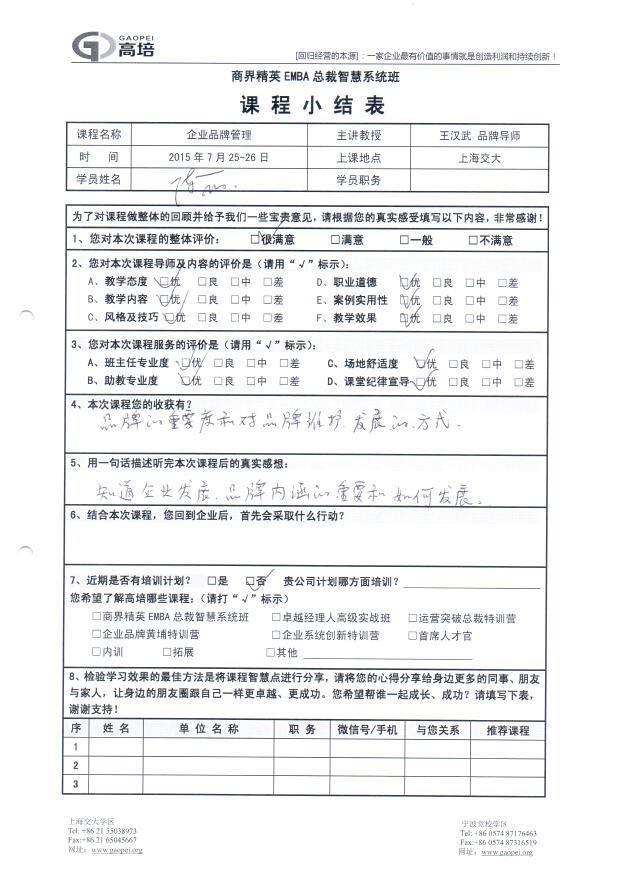 GAOPEI
高培
[回归经营的本源]：一家企业最有价值的事情就是创造利润和持续创新！
商界精英 EMBA 总裁智慧系统班
课 程 小 结 表
课程名称 企业品牌管理 主讲教授 王汉武 品牌导师
时 间 2015 年 7 月 25-26 日 上课地点 上海交大
学员姓名 学员职务
为了对课程做整体的回顾并给予我们一些宝贵意见，请根据您的真实感受填写以下内容，非常感谢！
1、您对本次课程的整体评价： □很满意 □满意 □一般 □不满意
2、您对本次课程导师及内容的评价是（请用“√”标示）：
A、教学态度 □优 □良 □中 □差 D、职业道德 □优 □良 □中 □差
B、教学内容 □优 □良 □中 □差 E、案例实用性 □优 □良 □中 □差
C、风格及技巧 □优 □良 □中 □差 F、教学效果 □优 □良 □中 □差
3、您对本次课程服务的评价是（请用“√”标示）：
A、班主任专业度 □优 □良 □中 □差 C、场地舒适度 □优 □良 □中 □差
B、助教专业度 □优 □良 □中 □差 D、课堂纪律宣导 □优 □良 □中 □差
4、本次课程您的收获有？
品牌的重要度和对品牌维护.发展的.方式.
5、用一句话描述听完本次课程后的真实感想：
知道企业发展.品牌内涵的重要和如何发展。
6、结合本次课程，您回到企业后，首先会采取什么行动？
7、近期是否有培训计划？ □是 □否 贵公司计划哪方面培训？
您希望了解高培哪些课程：（请打“√”标示）
□商界精英 EMBA 总裁智慧系统班 □卓越经理人高级实战班 □运营突破总裁特训营
□企业品牌黄埔特训营 □企业系统创新特训营 □首席人才官
□内训 □拓展 □其他
8、检验学习效果的最佳方法是将课程智慧点进行分享，请将您的心得分享给身边更多的同事、朋友
与家人，让身边的朋友圈跟自己一样更卓越、更成功。您希望帮谁一起成长、成功？请填写下表，
谢谢支持！
序 姓 名 单 位 名 称 职 务 微信号/手机 与您关系 推荐课程
1
2
3
上海交大学区 宁波党校学区
Tel: +86 21 55038973 Tel: +86 0574 87176463
Fax:+86 21 65045667 Fax:+86 0574 87316519
网址：www.gaopei.org 网址：www.gaopei.org